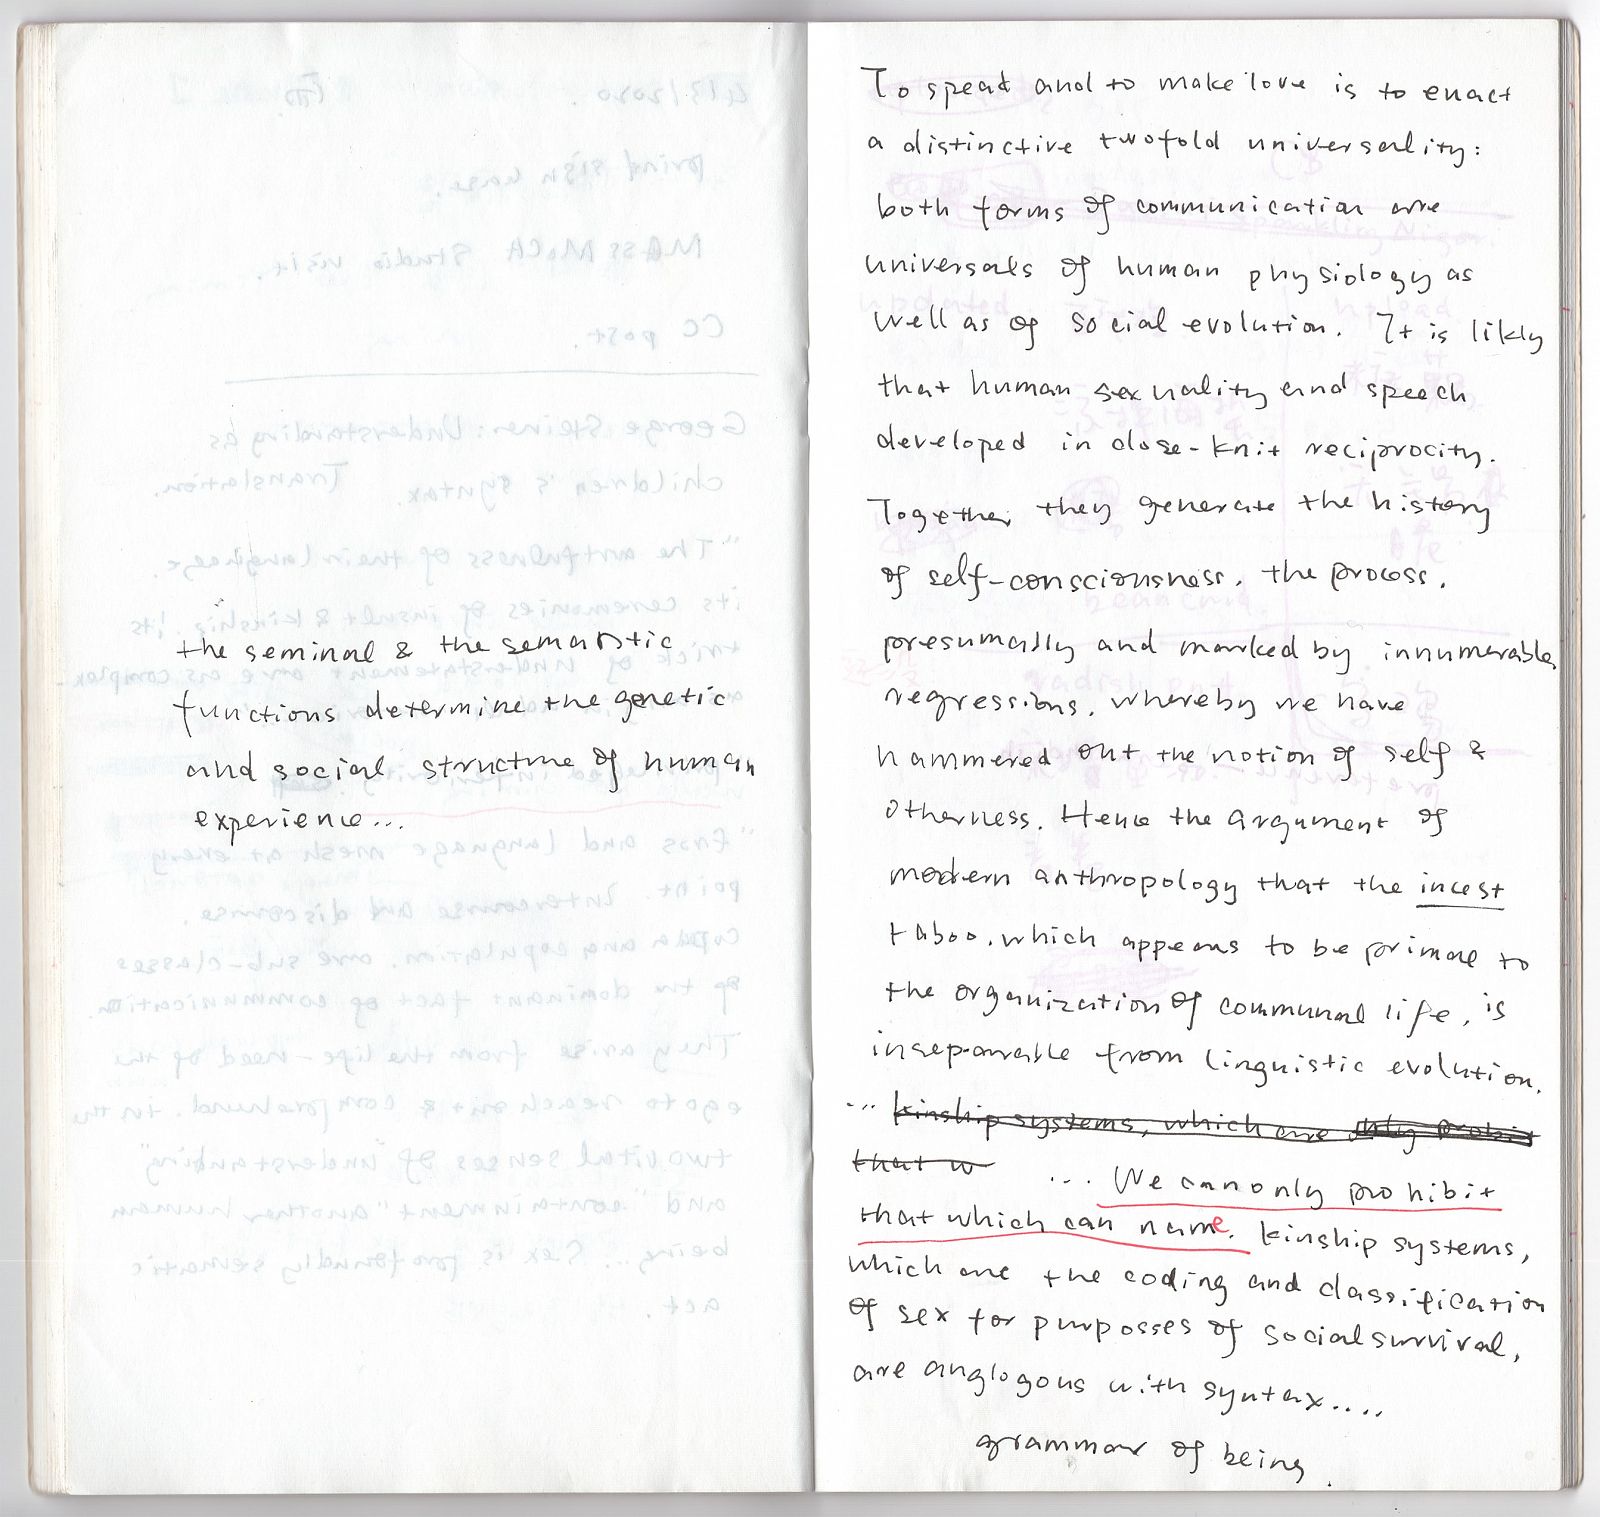 the seminal & the semantic
functions determine the genetic
and social structure of human
experience...
To speak and to make love is to enact
a distinctive twofold universality:
both forms of communication are
universals of human physiology as
well as of social evolution. It is likly
that human sexuality and speech
developed in close-knit reciprocity.
Together they generate the history
of self-consciousness, the process,
presumably and marked by innumerable
regressions, whereby we have
hammered out the notion of self &
otherness. Hence the argument of
modern anthropology that the incest
taboo, which appears to be primal to
the organization of communal life, is
inseparable from linguistic evolution.
... kinship systems, which are only prohibit
that w ... We can only prohibit
that which can name. kinship systems,
which are the coding and classification
of sex for purposses of social survival,
are anglogous with syntax....
grammar of being.